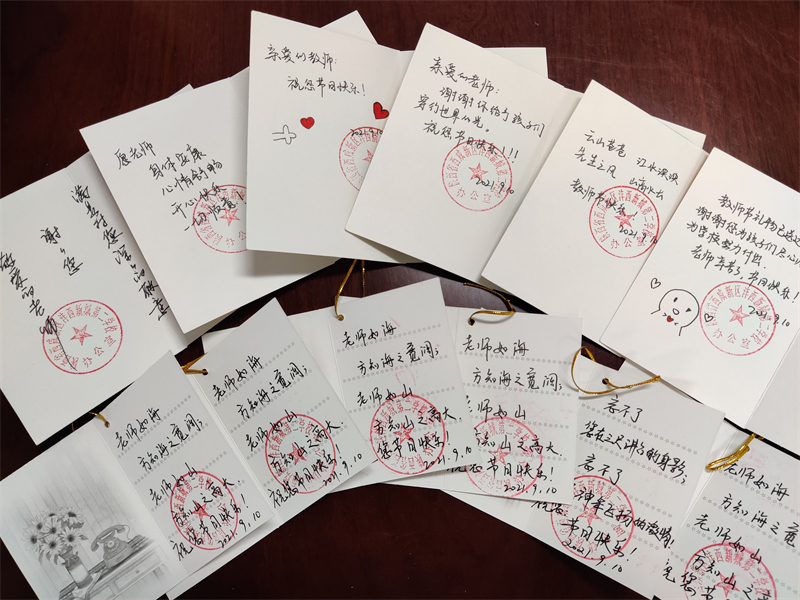 满
谢谢您
敬爱的老师
愿老师
身体安康
心情舒畅
开心快乐
亲爱的教师:
祝您节日快乐!
2021.9.10
亲爱的老师:
谢谢你给予孩子们
穿行世界的光。
祝您节日快乐!!!
2021.9.10
云山苍苍 江水泱泱
先生之风 山高水长
教师节快乐
2021.9.10
教师节礼物已送达
谢谢您为孩子们点心
为学校努力付出
老师辛苦了,节日快乐!
2021.9.10
老师如海
方知海之宽阔;
老师如山
方知山之高大。
祝您节日快乐!
2021.9.10
老师如海
方知海之宽阔;
老师如山
方知山之高大。
祝您节日快乐!
2021.9.10
老师如海
方知海之宽阔;
老师如山
方知山之高大
您节日快乐!
2021.9.10
老师如海
方知海之宽阔;
老师如山
方知山之高大。
祝您节日快乐!
2021.9.10
忘不了
您在三尺讲台的身影;
忘不了
神采飞扬的激情!
节日快乐!
2021.9.10
老师如海
方知海之宽阔
老师如山
方知山之高
祝您节